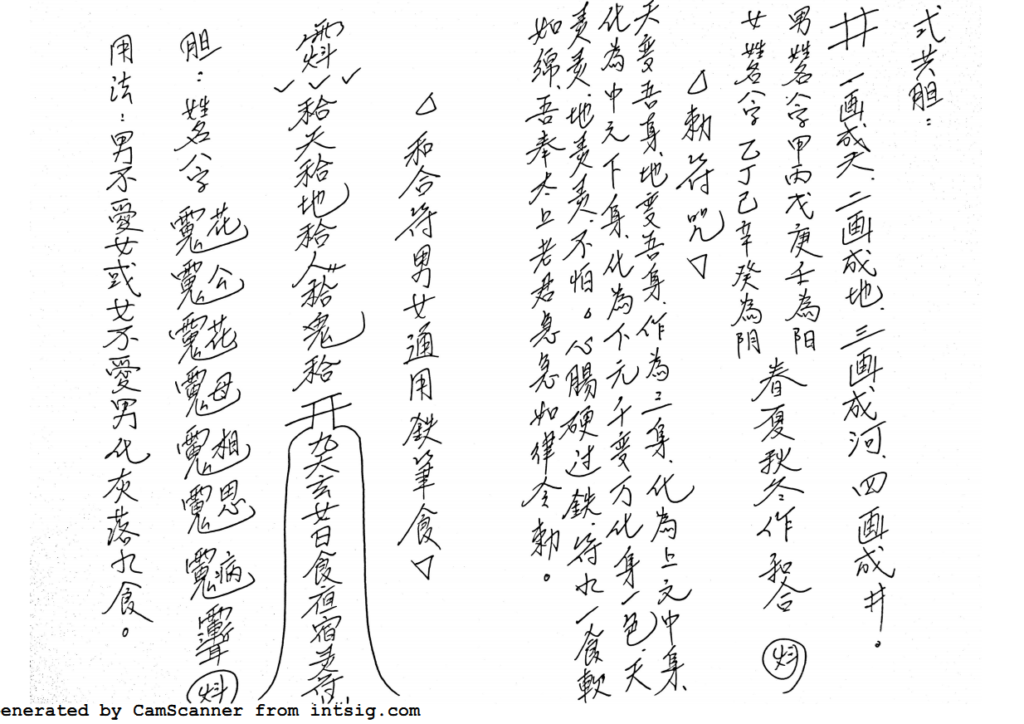 式共胆：
井 一画成天、二画成地、三画成河、四画成井。
男姓名八字甲丙戊庚壬為阳
女姓名八字乙丁己辛癸為阴
春夏秋冬作和合
△勅符咒▽
天变吾身、地变吾身、作為三身、化為上文中集、
化為中元下身、化為下元、千变万化身一色、天
灵灵、地灵灵、不怕。心腸硬过鉄、符水一食軟
如綿、吾奉太上老君急急如律令勅。
△和合符男女通用鉄筆食▽
天 地 人 鬼
九天玄女日食夜宿灵符
胆：姓名八字 花 公 花 母 相 思 病
用法：男不愛女或女不愛男化灰落水食。
enerated by CamScanner from intsig.com